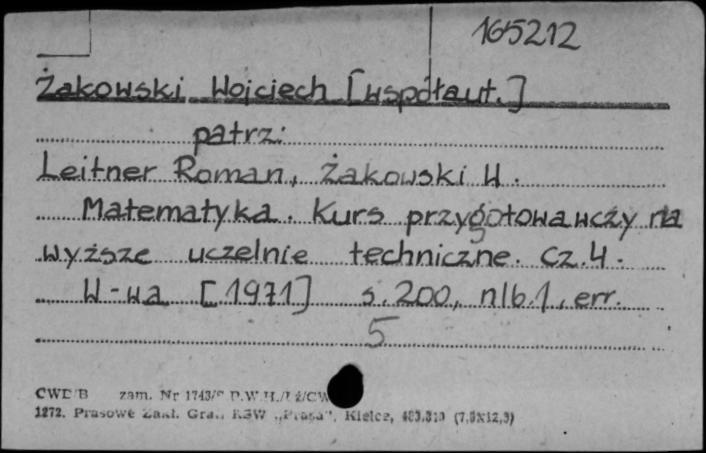 165212
Żakowski Wojciech [współaut.]
patrz:
Leitner Roman, Żakowski W.
Matematyka. Kurs przygotowawczy na
wyższe uczelnie techniczne. Cz. 4.
W-wa [1971] s. 200, nlb. 1, err.
5
CWD/B zam. Nr 1743/
1272. Prasowe Zakł. Graf. RSW „Prasa”, Kielce, 483.310 (7,5x12,5)